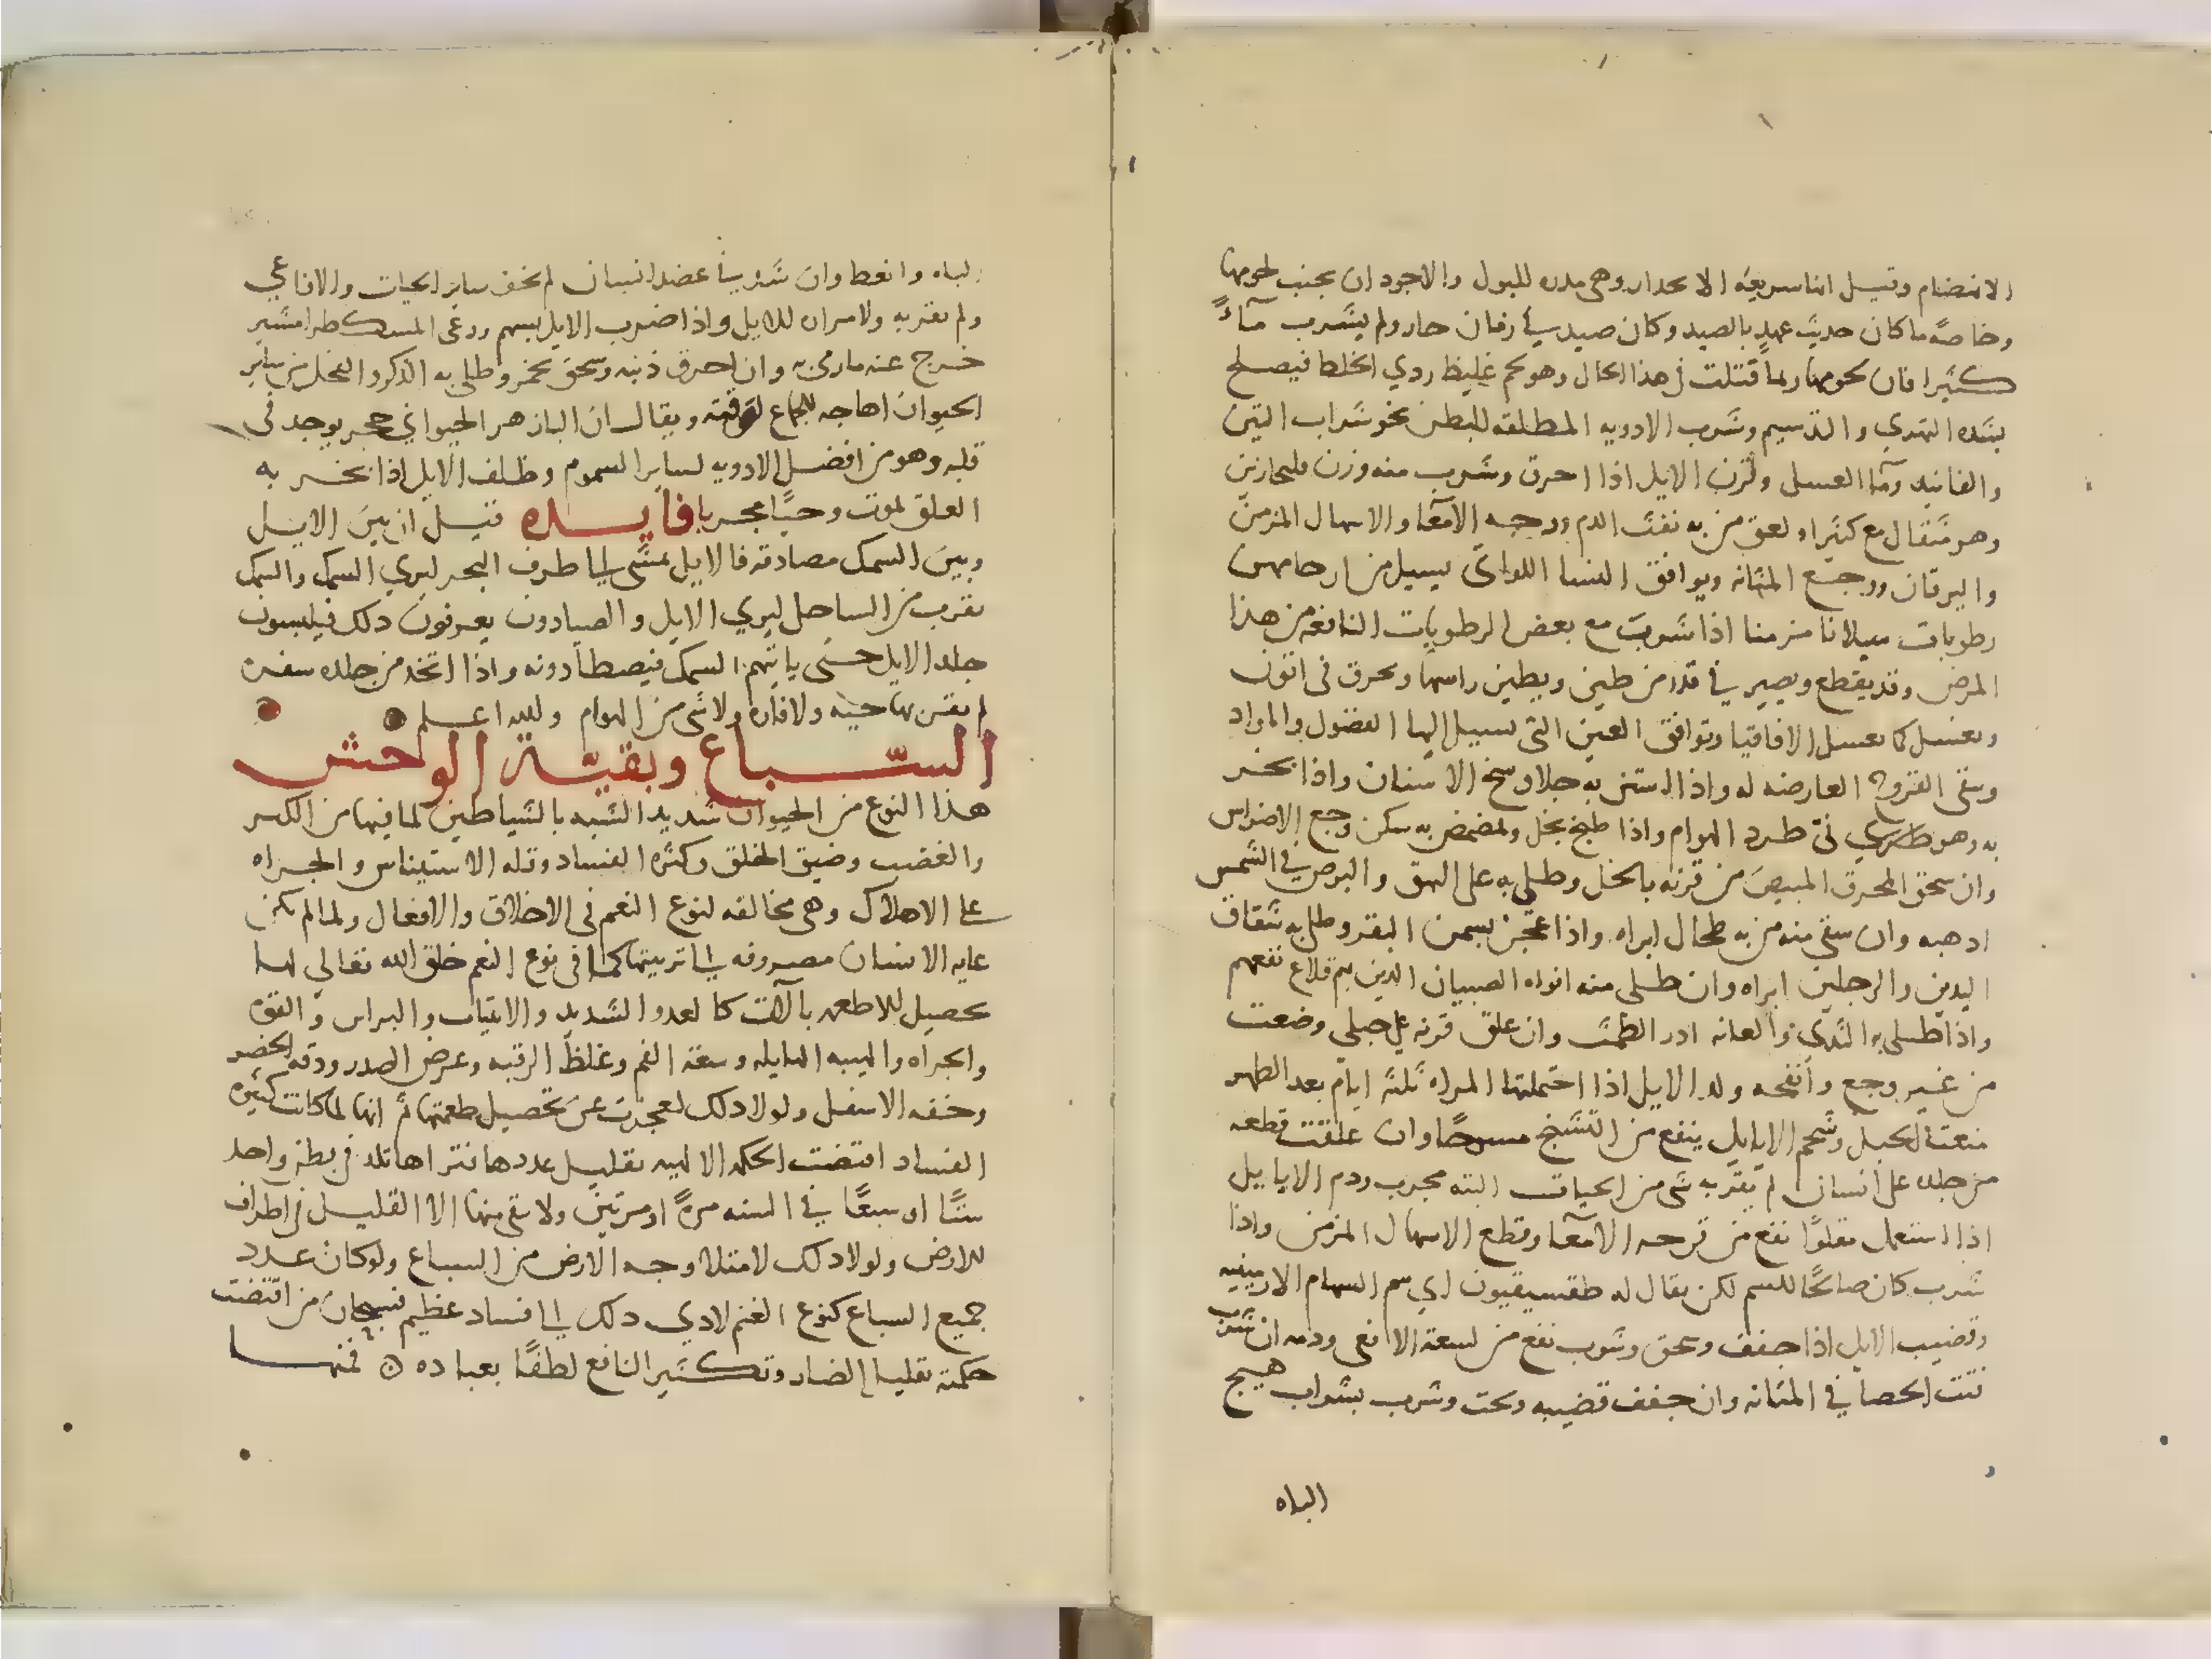 الانهضام وقيل انها سريعة الانحدار وهى مدره للبول والاجود ان يجنب لحومها
وخاصة ما كان حديث عهد بالصيد وكان صيد في زمان حار ولم يشرب ماءً
كثيرا فان لحومها ربما قتلت في هذا الحال وهو لحم غليظ ردي الخلط فيصلح
بشده التهري والتدسيم وشرب الادويه المطلقه للبطن نحو شراب التين
والفانيد وماء العسل وقرن الايل اذا احرق وشرب منه وزن فلنجارين
وهو مثقال مع كثيرا ولعق من به نفث الدم ووجع الامعا والاسهال المزمن
واليرقان ووجع المثانه ويوافق النسا اللواتي يسيل من ارحامهن
رطوبات سيلانا مزمنا اذا شربت مع بعض الرطوبات النافعه من هذا
المرض وقد يقطع ويصير في قدر من طين ويطين راسها ويحرق فى اتون
ويغسل كما يغسل الاقاقيا ويوافق العين التى يسيل اليها الفضول والمواد
وينقى القروح العارضه له واذا استن به جلا وسخ الاسنان واذا بخر
به وهو طري فى طرد الهوام واذا طبخ بخل وتمضمض به سكن وجع الاضراس
وان سحق المحرق المبيض من قرنه بالخل وطلى به على البهق والبرص في الشمس
اذهبه وان سقى منه من به طحال ابراه واذا عجن بسمن البقر وطلى به شقاق
اليدين والرجلين ابراه وان طلى منه افواه الصبيان الذين بهم قلاع نفعهم
واذا طلى به الثدى والعانه ادر الطمث وان علق قرنه على حبلى وضعت
من غير وجع وانفحه ولد الايل اذا احتملتها المراه ثلثة ايام بعد الطهر
منعت الحبل وشحم الايايل ينفع من التشنج مسوحًا وان علقت قطعه
من جلده على انسان لم يقربه شى من الحيات البته مجرب ودم الايايل
اذا استعمل مقلوًا نفع من قرحه الامعا وقطع الاسهال المزمن واذا
شرب كان صالحًا للسم لكن يقال له طقسيقيون اي سم السهام الارمينيه
وقضيب الايل اذا جفف وسحق وشرب نفع من لسعة الافعى ودمه ان شرب
فتت الحصا في المثانه وان جفف قضيبه وسحق وشرب بشراب هيج
الباه
الباه وانعظ وان شد في عضد انسان لم يخف ساير الحيات والافاعي
ولم يقربه ولا مراره للايل واذا ضرب الايل بسهم ورعى المسكطرامشير
خرج عنه ما رمى به وان احرق ذنبه وسحق بخمر وطلى به الذكر والفحل من ساير
الحيوان اهاجه للجماع لوقته ويقال ان البازهر الحيواني حجر يوجد فى
قلبه وهو من افضل الادويه لساير السموم وظلف الايل اذا بخر به
العلق لموت وحيًا مجربا فايده قيل ان بين الايل
وبين السمك مصادقه فالايل يمشى الى طرف البحر ليري السمك والسمك
يقرب من الساحل ليري الايل والصيادون يعرفون ذلك فيلبسون
جلد الايل حتى ياتيهم السمك فيصطادونه واذا اتخذ من جلده سفره
لم يقربها حيه ولا فاره ولا شى من الهوام والله اعلم
السّباع وبقيّة الوحش
هذا النوع من الحيوان شديد الشبه بالشياطين لما فيها من الكبر
والغضب وضيق الخلق وكثره الفساد وقله الاستيناس والجراه
على الاهلاك وهى مخالفه لنوع النعم فى الاخلاق والافعال ولما لم يكن
عنايه الانسان مصروفه الى تربيتها كما فى نوع النعم خلق الله تعالى لها
تحصيل للاطعمه بآلات كالعدو الشديد والانياب والبراثن والقوه
والجراه والهيبه الهايله وسعة الفم وغلظ الرقبه وعرض الصدر ودقه الخصر
وخفه الاسفل ولولا ذلك لعجزت عن تحصيل طعمتها ثم انها لما كانت كثيره
الفساد اقتضت الحكمه الالهيه تقليل عددها فتراها تلد في بطن واحد
ستًا او سبعًا في السنه مرةً او مرتين ولا يبقى منها الا القليل في اطراف
للارض ولولا ذلك لامتلا وجه الارض من السباع ولو كان عدد
جميع السباع كنوع الغنم لادي ذلك الى افساد عظيم فسبحان من اقتضت
حكمته تقليل الضار وتكثير النافع لطفًا بعباده ۞ فمنها